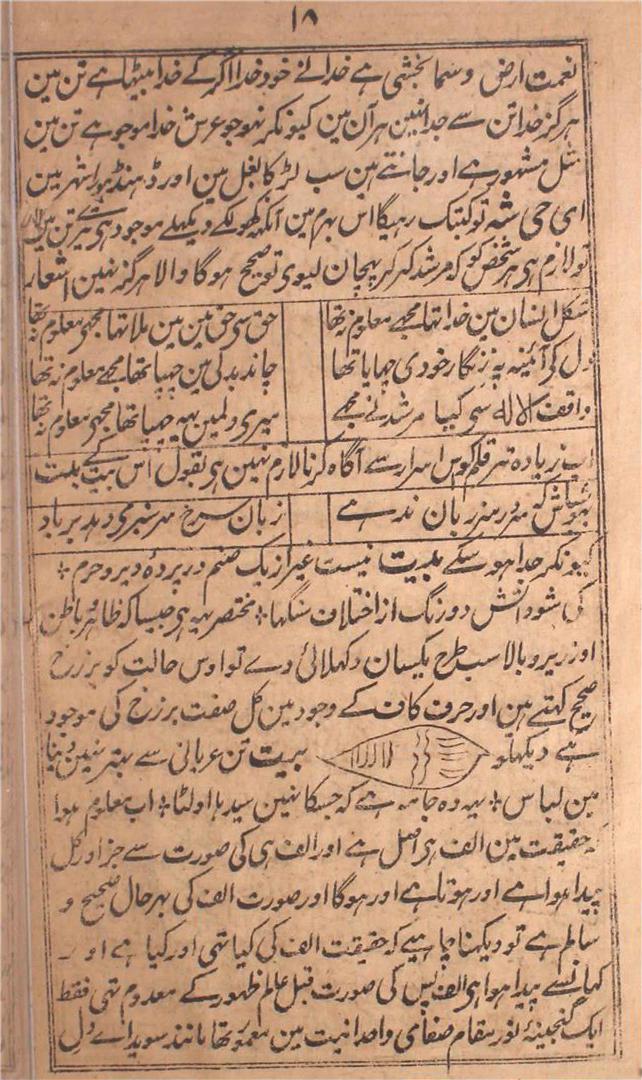 ۱۸
نعمت ارض و سما بخشی ہے خدا نے خود خدا اگر کے خدا بیٹھا ہے تن مین
ہرگز خدا تن سے جدا نہین ہر آن مین کیونکر نہو جو عرش خدا موجو ہے تن مین
مثل مشہور ہے اور جانتے ہین سب لڑکا بغل مین اور ڈھنڈہورا شہر مین
ای حی شہ تو کبتک رہیگا اس بہرم مین آنکھ کھولکے دیکھلے موجود ہی ہر تن مین
تو لازم ہی ہر شخص کو کہ مرشد کر کر پہچان لیوی تو صحیح ہوگا والا ہرگز نہین اشعار
شکل انسان مین خدا تھا مجھے معلوم نہ تھا حق سی حق مین مین ملا تھا مجھی معلوم نہ تھا
دل کے آئینہ پہ زنگار خودی چھایا تھا چاند بدلی مین چھپا تھا مجھے معلوم نہ تھا
واقف لا الہ سی کیا مرشد نے مجھے میری دلمین یہہ چھپا تھا مجھی معلوم نہ تھا
اب زیادہ تر قلم کو اس اسرار سے آگاہ کرنا لازم نہین ہی بقول اس بیت کے بیت
سر در سر زبان ندہے زبان سرخ سر سبز می دہد برباد
کیونکر جدا ہو سکے بیت نیست غیر از یک صنم در پردۂ دیر و حرم ؞
کی شود آتش دو رنگ از اختلاف سنگھا ؞ مختصر یہہ ہی جیسا کہ ظاہر و باطن
اور زیر و بالا سب طرح یکسان دکھلائی دے تو اوس حالت کو برزخ
صحیح کہتے ہین اور حرف کاف کے وجود مین کل صفت برزخ کی موجود
ہے دیکھلو بیت تن عریانی سے بہتر نہین دنیا
مین لباس ؞ یہہ وہ جامہ ہے کہ جسکا نہین سیدہا اولٹا ؞ اب معلوم ہوا
کہ حقیقت مین الف ہی اصل ہے اور الف ہی کی صورت سے جز اور کل
پیدا ہوا ہے اور ہوتا ہے اور ہوگا اور صورت الف کی بہر حال صحیح و
سالم ہے تو دیکھنا چاہیے کہ حقیقت الف کی کیا تھی اور کیا ہے اور
کہانسے پیدا ہوا ہی الف پس کی صورت قبل عالم ظہور کے معدوم تھی فقط
ایک گنجینۂ نور بمقام صفای واحدانیت مین معمور تھا مانند سویدائے دل